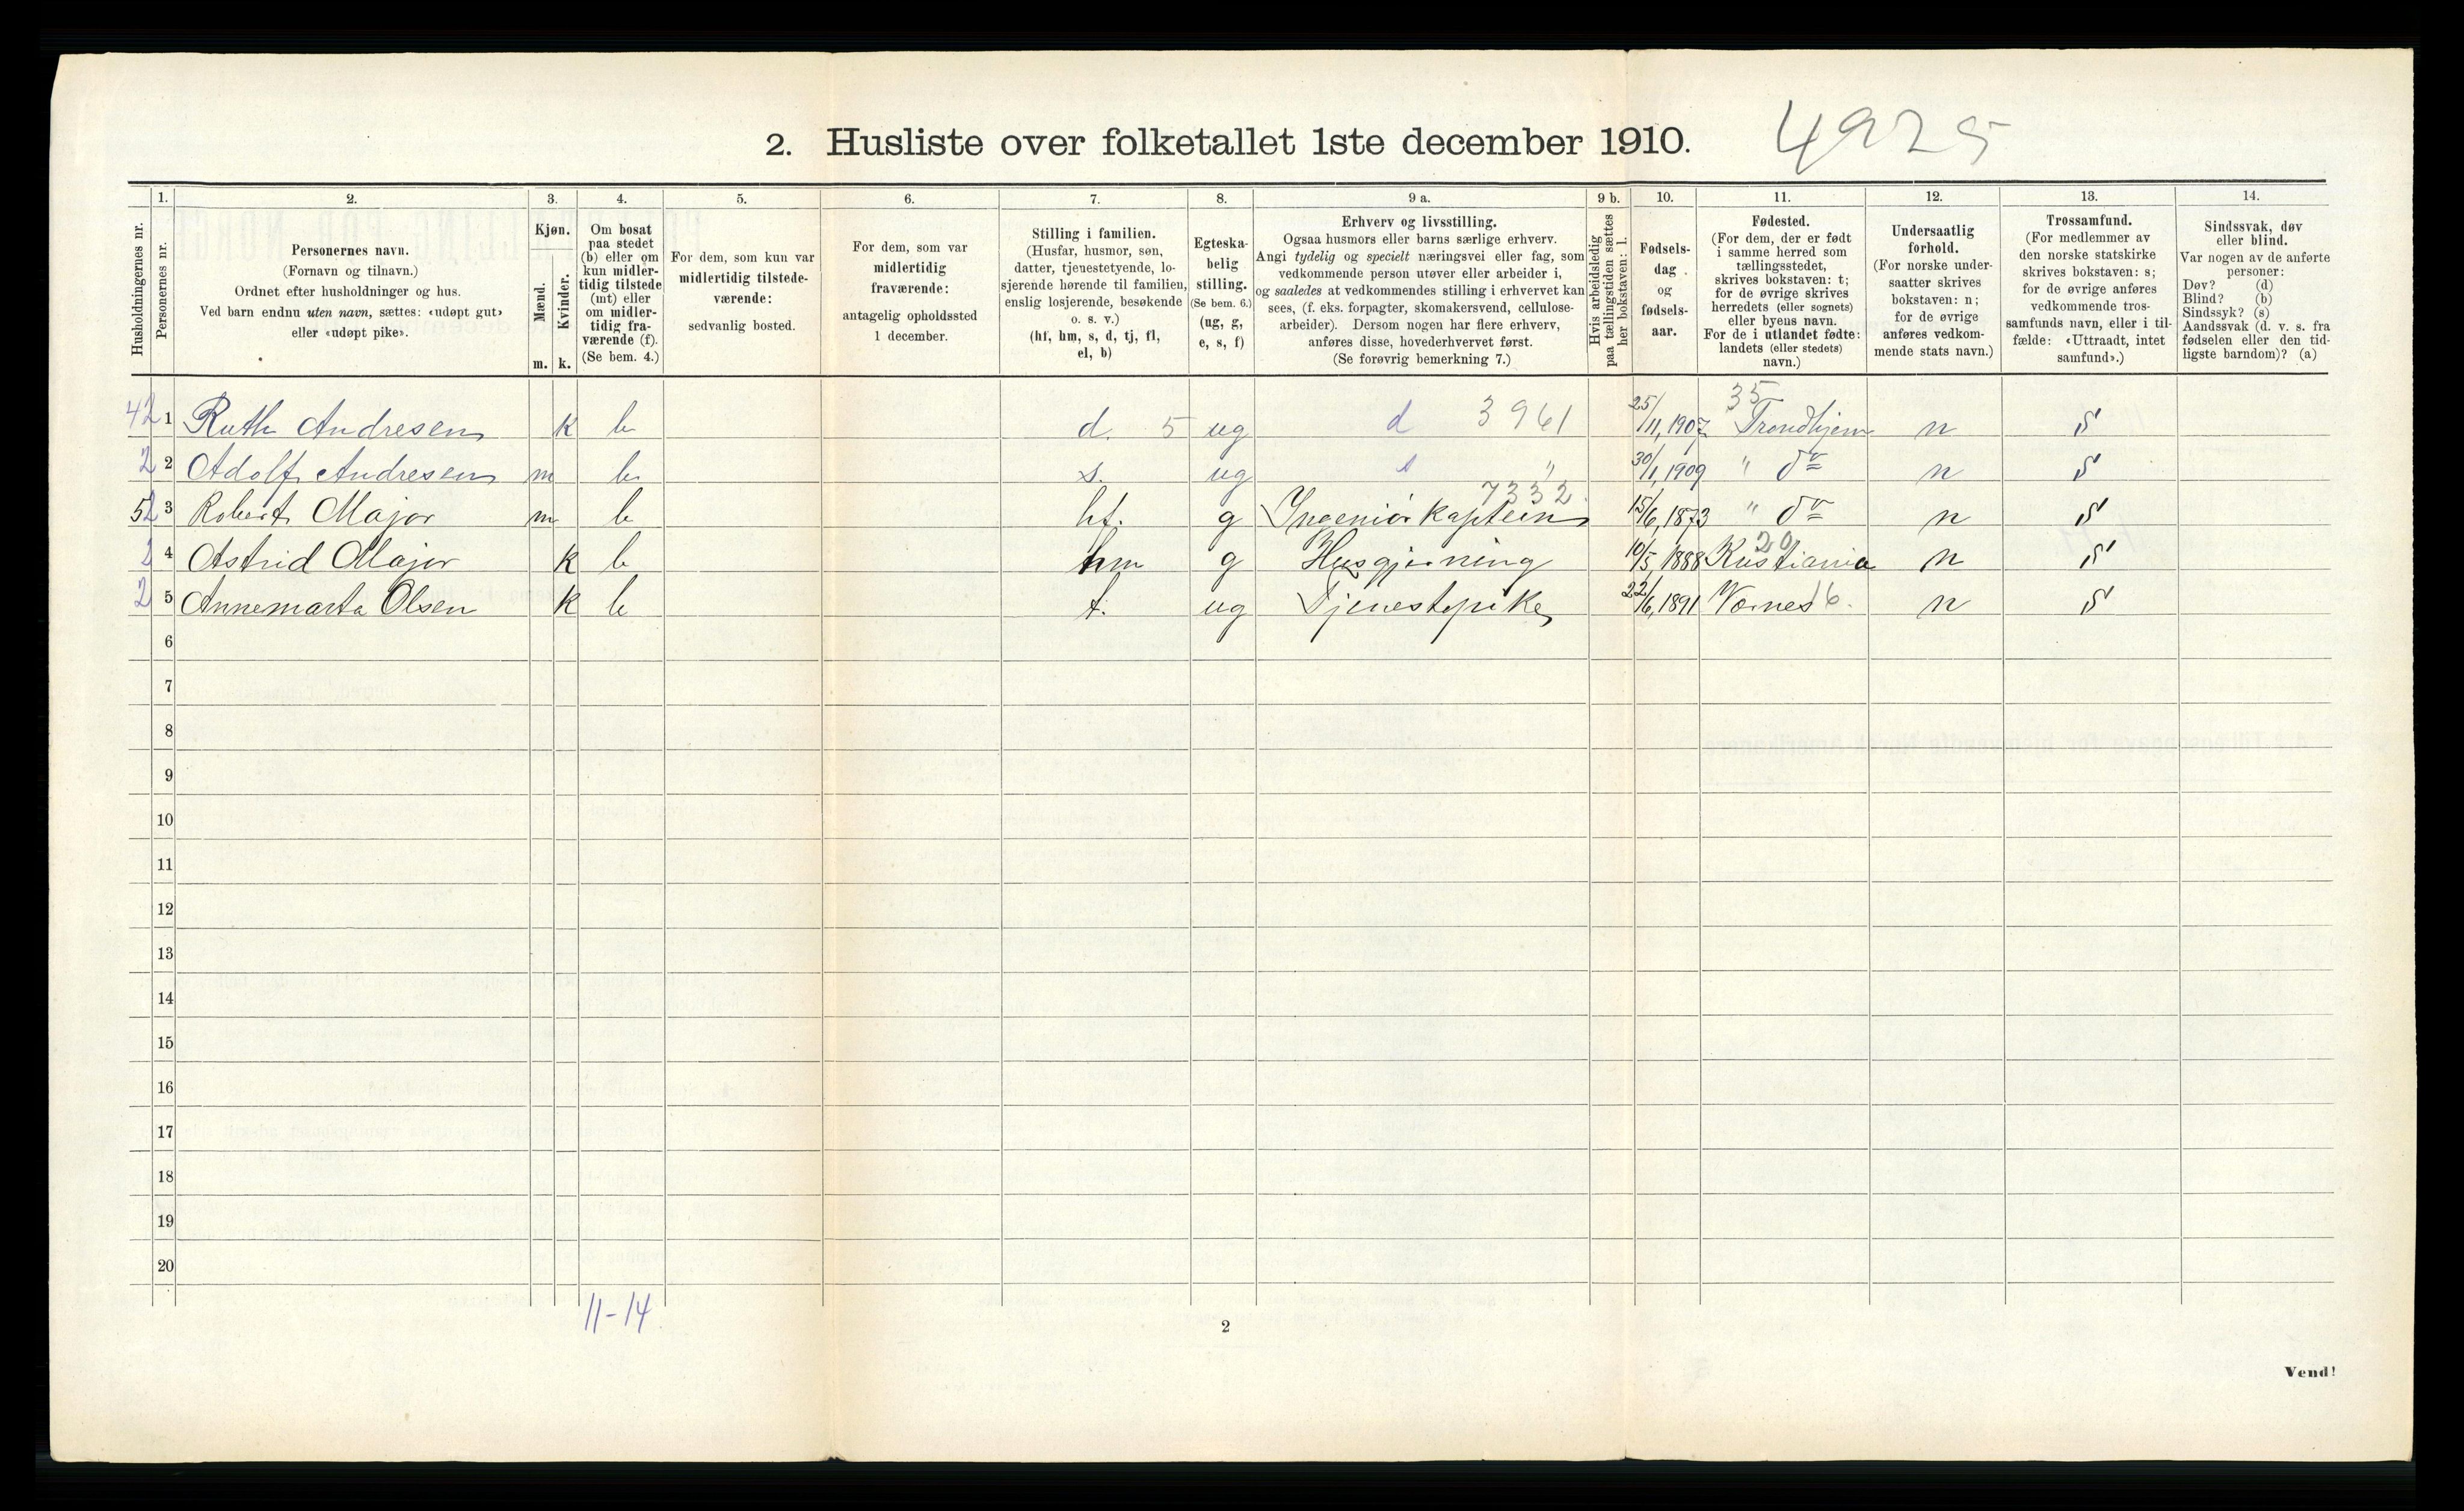 2. Husliste over folketallet 1ste december 1910. 4925
Husholdningernes nr.
1.
Personernes nr.
2.
Personernes navn.
(Fornavn og tilnavn.)
Ordnet efter husholdninger og hus.
Ved barn endnu uten navn, sættes: «udøpt gut»
eller «udøpt pike».
3.
Kjøn.
Mænd.
m.
Kvinder.
k.
4.
Om bosat
paa stedet
(b) eller om
kun midler-
tidig tilstede
(mt) eller
om midler-
tidig fra-
værende (f).
(Se bem. 4.)
5.
For dem, som kun var
midlertidig tilstede-
værende:
sedvanlig bosted.
6.
For dem, som var
midlertidig
fraværende:
antagelig opholdssted
1 december.
7.
Stilling i familien.
(Husfar, husmor, søn,
datter, tjenestetyende, lo-
sjerende hørende til familien,
enslig losjerende, besøkende
o. s. v.)
(hf, hm, s, d, tj, fl,
el, b)
8.
Egteska-
belig
stilling.
(Se bem. 6.)
(ug, g,
e, s, f)
9 a.
Erhverv og livsstilling.
Ogsaa husmors eller barns særlige erhverv.
Angi tydelig og specielt næringsvei eller fag, som
vedkommende person utøver eller arbeider i,
og saaledes at vedkommendes stilling i erhvervet kan
sees, (f. eks. forpagter, skomakersvend, cellulose-
arbeider). Dersom nogen har flere erhverv,
anføres disse, hovederhvervet først.
(Se forøvrig bemerkning 7.)
9 b.
Hvis arbeidsledig
paa tællingstiden sættes
her bokstaven: l.
10.
Fødsels-
dag
og
fødsels-
aar.
11.
Fødested.
(For dem, der er født
i samme herred som
tællingsstedet,
skrives bokstaven: t;
for de øvrige skrives
herredets (eller sognets)
eller byens navn.
For de i utlandet fødte:
landets (eller stedets)
navn.)
12.
Undersaatlig
forhold.
(For norske under-
saatter skrives
bokstaven: n;
for de øvrige
anføres vedkom-
mende stats navn.)
13.
Trossamfund.
(For medlemmer av
den norske statskirke
skrives bokstaven: s;
for de øvrige anføres
vedkommende tros-
samfunds navn, eller i til-
fælde: «Uttraadt, intet
samfund».)
14.
Sindssvak, døv
eller blind.
Var nogen av de anførte
personer:
Døv? (d)
Blind? (b)
Sindssyk? (s)
Aandssvak (d. v. s. fra
fødselen eller den tid-
ligste barndom)? (a)
35
42 1 Ruth Andresen k b d. 5 ug d 3961 25/11, 1907 Trondhjem n S
2 2 Adolf Andresen m b s. ug s " 30/1, 1909 " do n S
7332.
52 3 Robert Major m b hf. g Ingeniør kaptein 15/6, 1873 " do n S
20
2 4 Astrid Major k b hm g Husgjerning 10/5, 1888 Kristiania n S
2 5 Annemarta Olsen k b t. ug Tjenestepike 22/6, 1891 Værnes 16. n S
6
7
8
9
10
11
12
13
14
15
16
17
18
19
20
11-14
2
Vend!